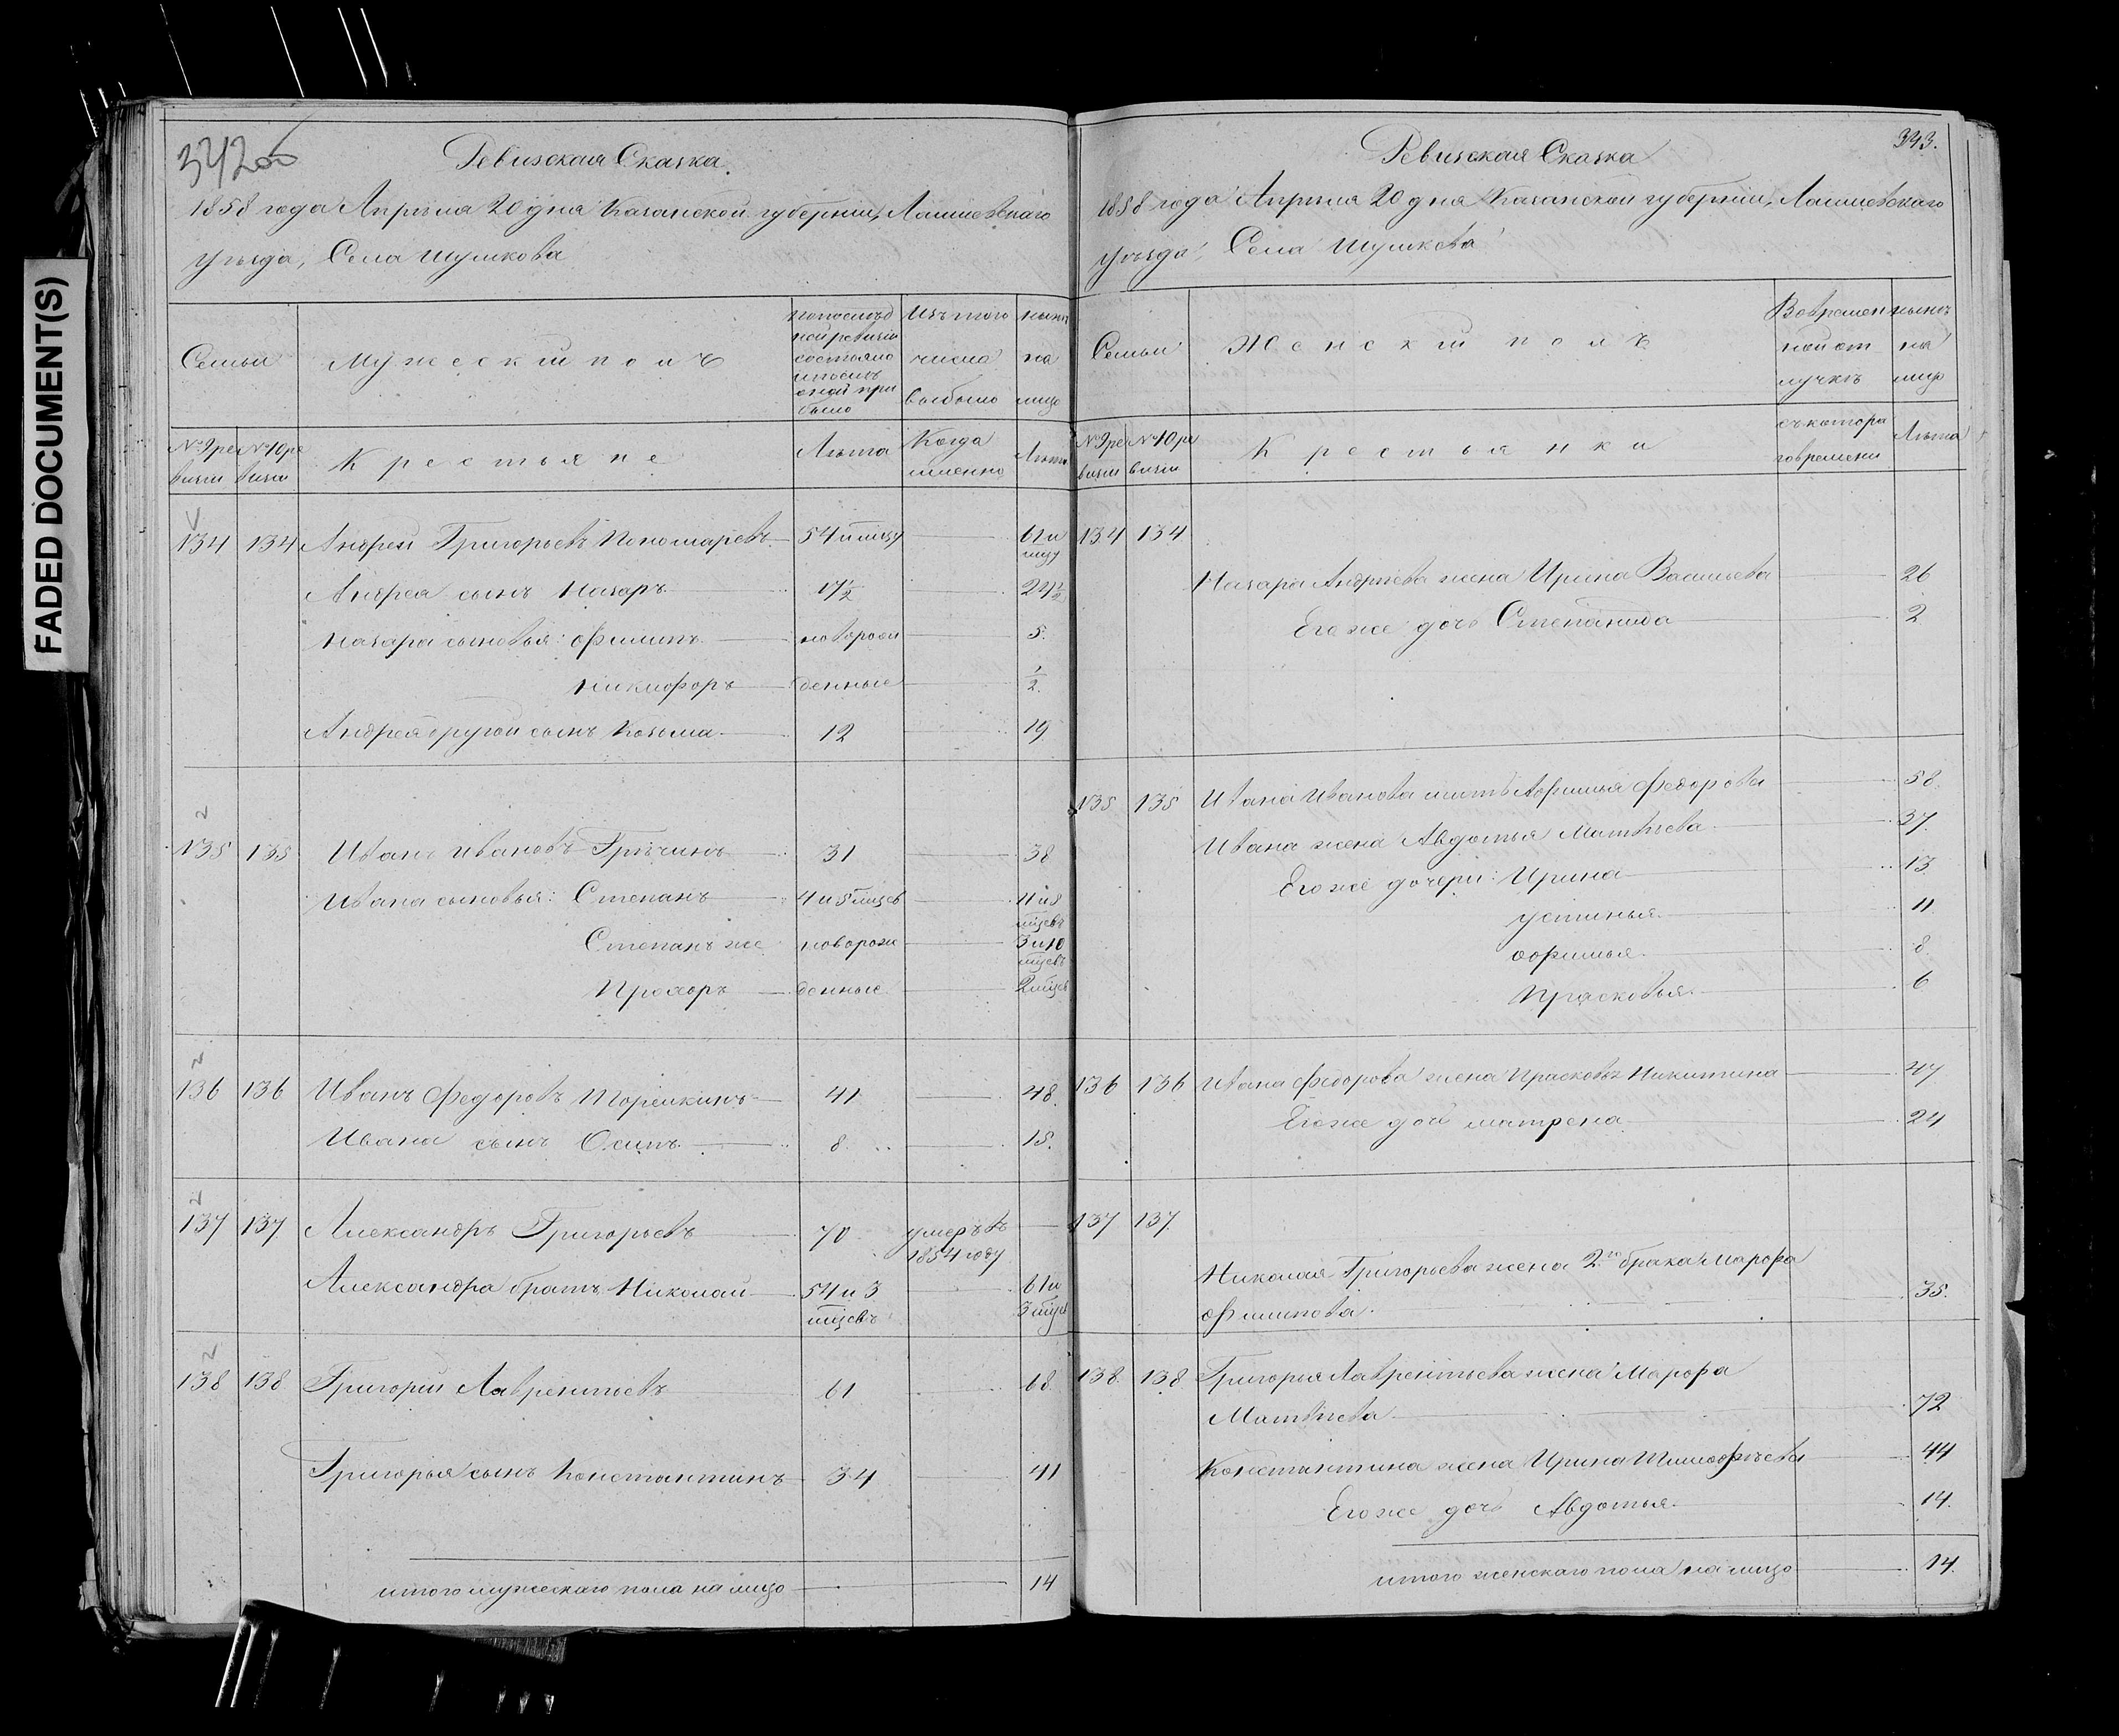 FADED DOCUMENT(S)
342об
Ревизская Сказка.
1858 года Апрѣля 20 дня Казанской губерніи, Лаишевскаго
уѣзда, Села Шумкова
Семьи
Мужескій полъ
по послѣд
ней ревизіи
состояло
и послѣ
оной при
было
Изъ того
числа
выбыло
нынѣ
на
лицо
№ 9 ре
визіи
№ 10 ре
визіи
Крестьяне
Лѣта
Когда
именно
Лѣта
134 134 Андрей Григорьевъ Пономаревъ 54 и мцу 61 и
мцу
Андрея сынъ Назаръ 17½ 24½
Назара сыновья: Филипъ новорож 5.
Никифоръ денные ½.
Андрея другой сынъ Козьма 12 19
135 135 Иванъ Ивановъ Гречинъ 31 38
Ивана сыновья: Степанъ 4 и 5 мцсв 11 и 8
мцсвъ
Степанъ же новорож 3 и 10
мцсвъ
Прохоръ денные 2 мцсв
136 136 Иванъ Федоровъ Торемкинъ 41 48.
Ивана сынъ Осипъ 8. 15.
137 137 Александръ Григорьевъ 70 умеръ въ
1854 году
Александра братъ Николай 54 и 3 61 и
мцсвъ 3 мцсв
138 138 Григорій Лаврентьевъ 61 68.
Григорья сынъ Константинъ 34 41
итого мужескаго пола на лицо 14
343.
Ревизская Сказка
1858 года Апрѣля 20 дня Казанской губерніи, Лаишевскаго
уѣзда, Села Шумкова
Семьи
Женскій полъ
Во времен
ной от
лучкѣ
нынѣ
на
лицо
№ 9 ре
визіи
№ 10 ре
визіи
Крестьянки
съ котора
го времени
Лѣта
134 134
Назара Андрѣева жена Ирина Васильева 26
Его же дочь Степанида 2
135 135 Ивана Иванова мать Афимья Федорова 58.
Ивана жена Авдотья Матвѣева 37.
Его же дочери: Ирина 13
Устинья 11.
Офимья 8.
Прасковья 6
136 136 Ивана Федорова жена Прасковья Никитина 47
Его же дочь Матрена 24
137 137.
Николая Григорьева жена 2го брака Марфа
Филипова. 35.
138. 138. Григорья Лаврентьева жена Марфа
Матвѣева 72
Константина жена Ирина Тимофѣева 44
Его же дочь Авдотья 14.
итого женскаго пола на лицо 14.